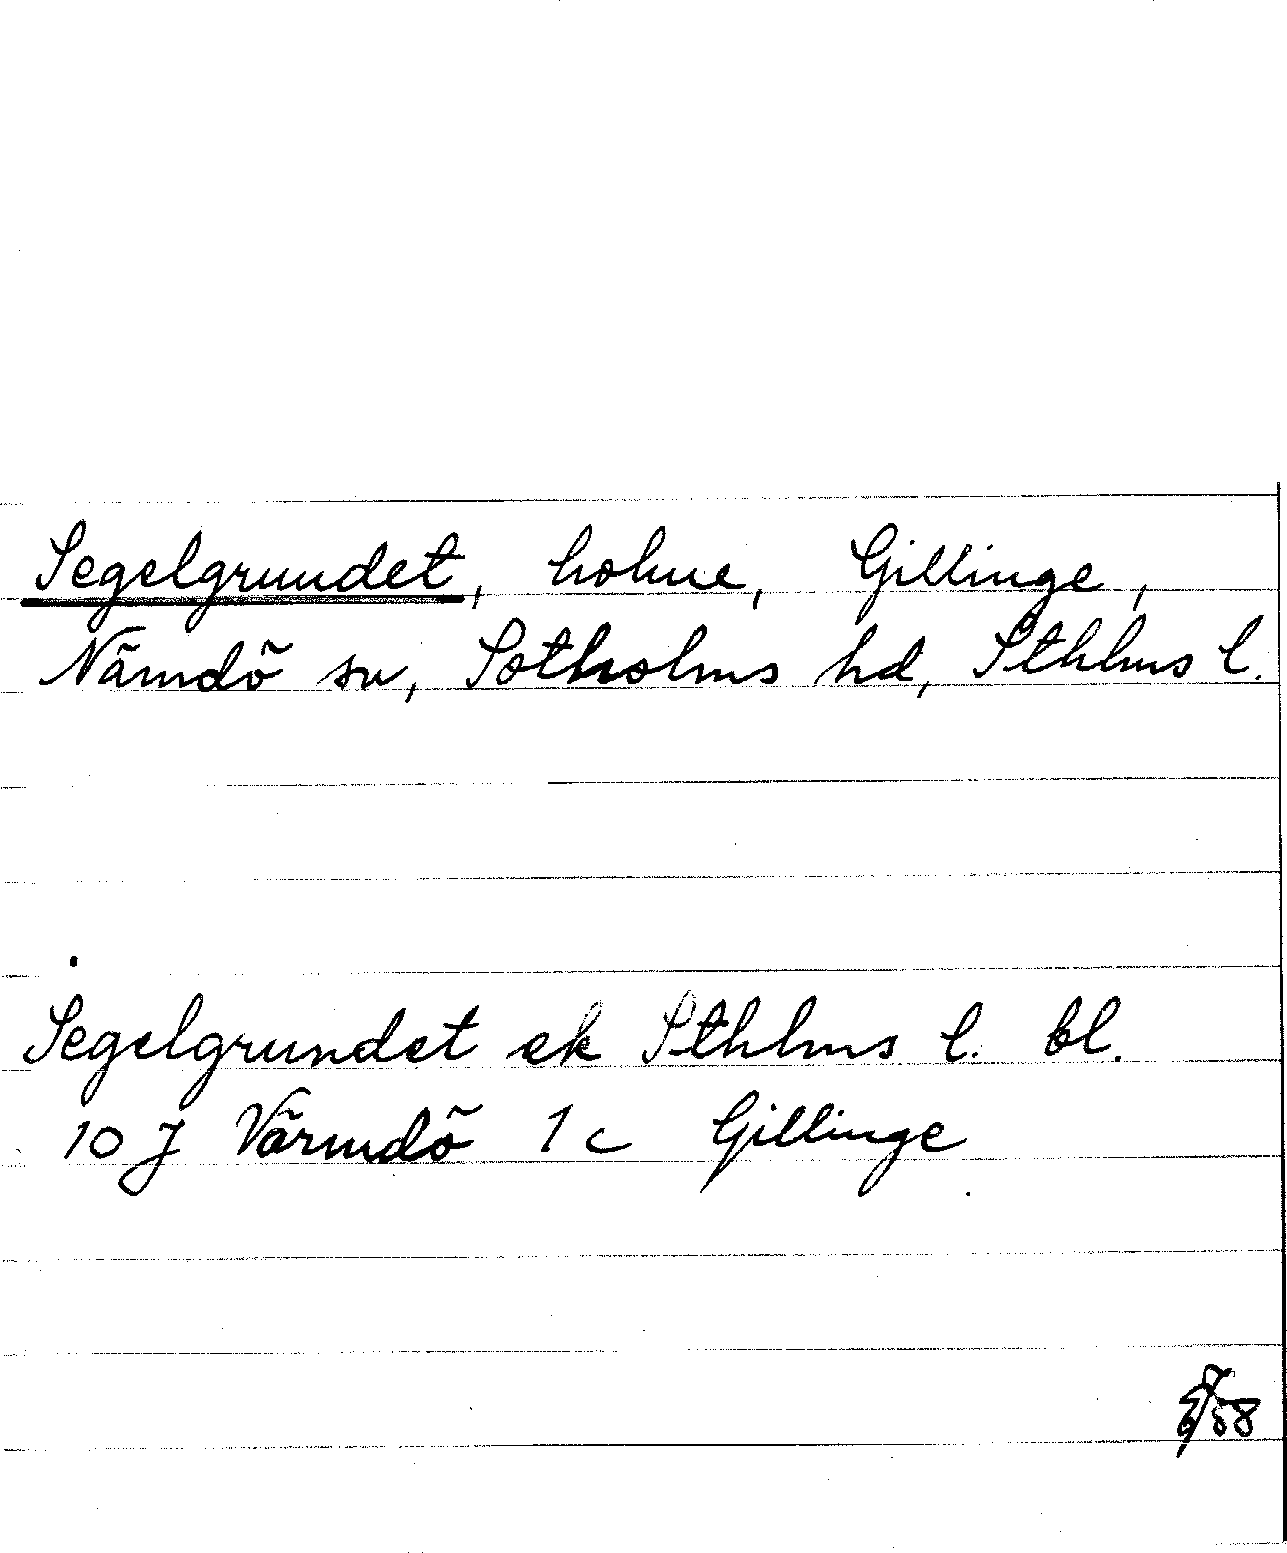 Segelgrundet, holme, Gillinge,
Nämdö sn, Sotholms hd, Sthlms l.
Segelgrundet ek Sthlms l. bl.
10 J Värmdö 1 c Gillinge
58